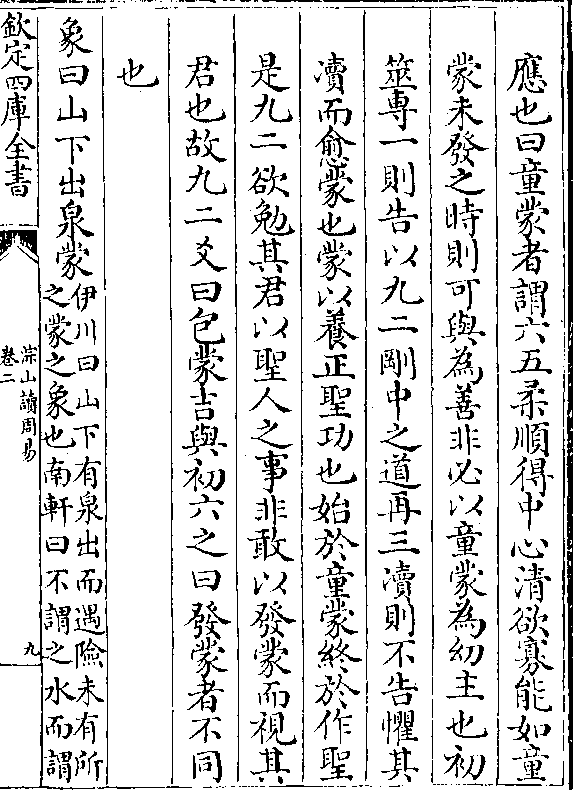 應也曰童蒙者謂六五柔順得中心清欲寡能如童
蒙未發之時則可與為善非必以童蒙為幼主也初
筮專一則告以九二剛中之道再三瀆則不告懼其
瀆而愈蒙也蒙以養正聖功也始於童蒙終於作聖
是九二欲勉其君以聖人之事非敢以發蒙而視其
君也故九二爻曰包蒙吉與初六之曰發蒙者不同
也
象曰山下出泉蒙伊川曰山下有泉出而遇險未有所
之蒙之象也南軒曰不謂之水而謂
欽定四庫全書
淙山讀周易
卷二
九